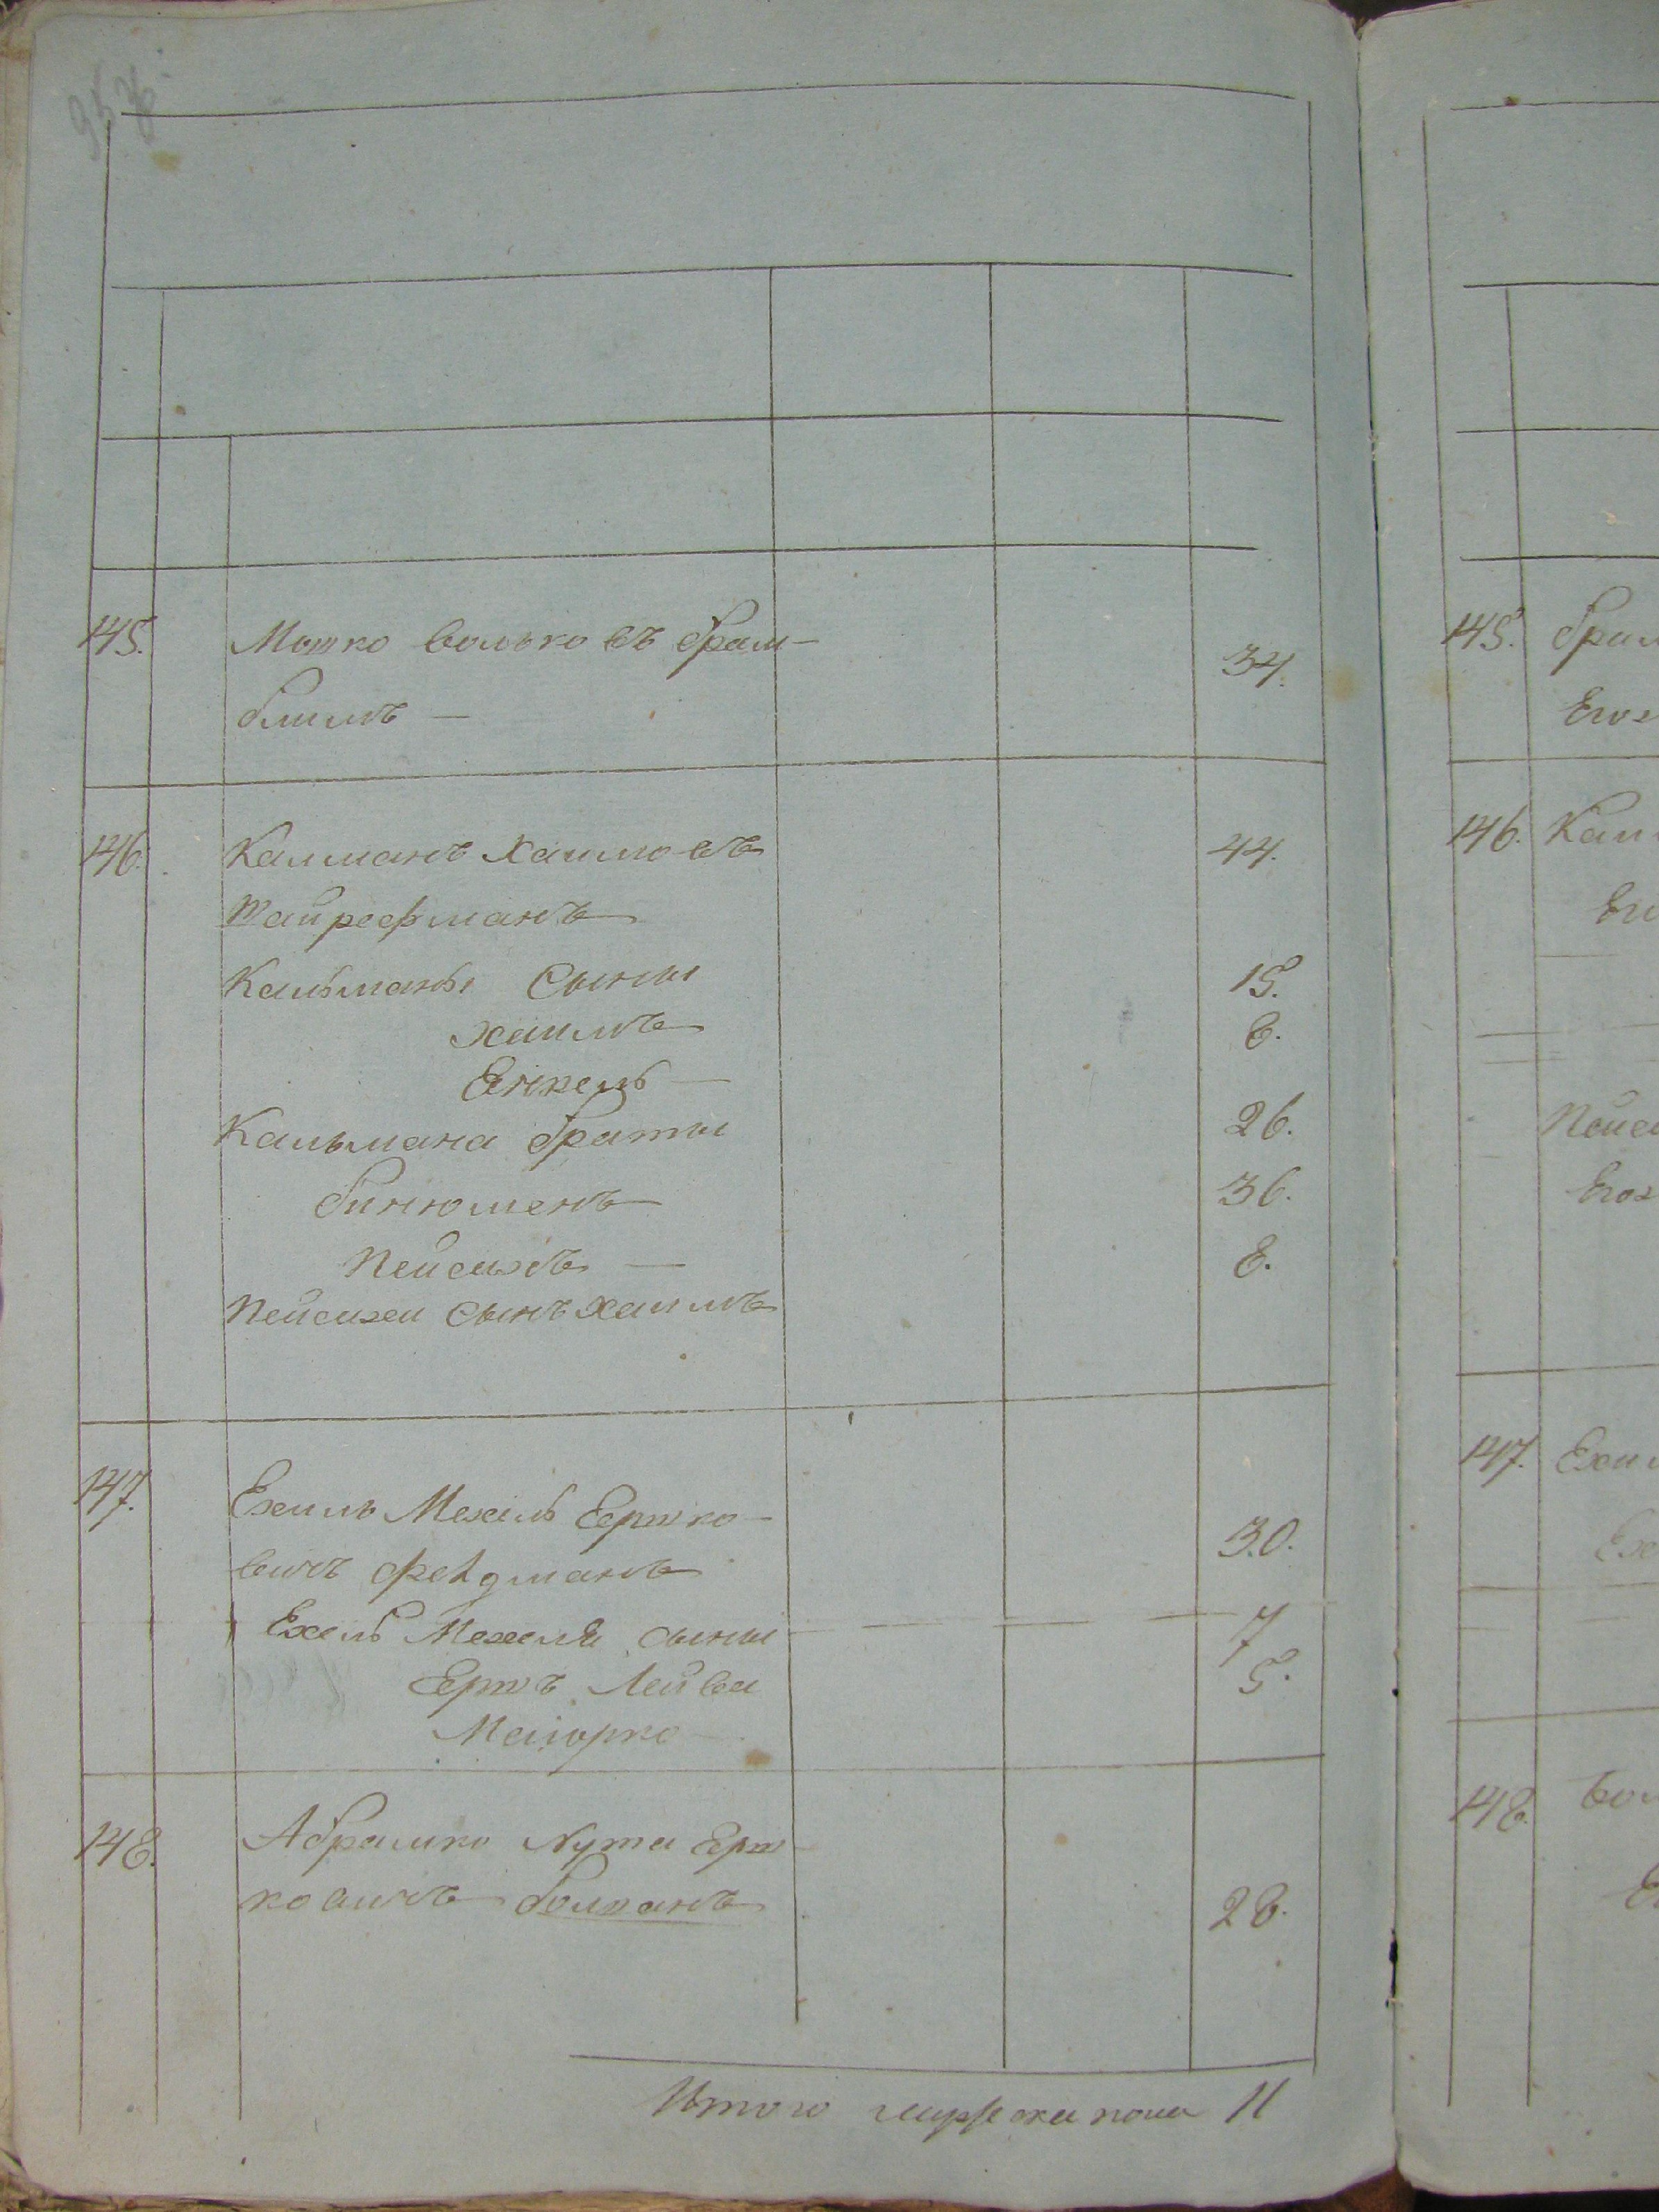 145. Мошко Волько въ Брам-
блимъ — 34.
146. Калманъ Хаимовъ 44.
Шайрефманъ
Кальманы Сыны 15.
Хаимъ 6.
Енкель —
Кальмана братьи 26.
Бинюменъ 36.
Пейсихъ — 8.
Пейсихи сынъ Хаимъ
147. Ехиль Мехель Ершко- 30.
вичъ Фелдманъ
Ехель Мехеля сыны 7
Ершъ Лейва 5.
Маиорко
148. Абрамко Нута Ерш
ковичъ Болманъ 28.
Итого мужеска пола 11
145. Брам
Его
146. Кал
Его
Пейси
Его
147. Ехил
Ех
148. Бол